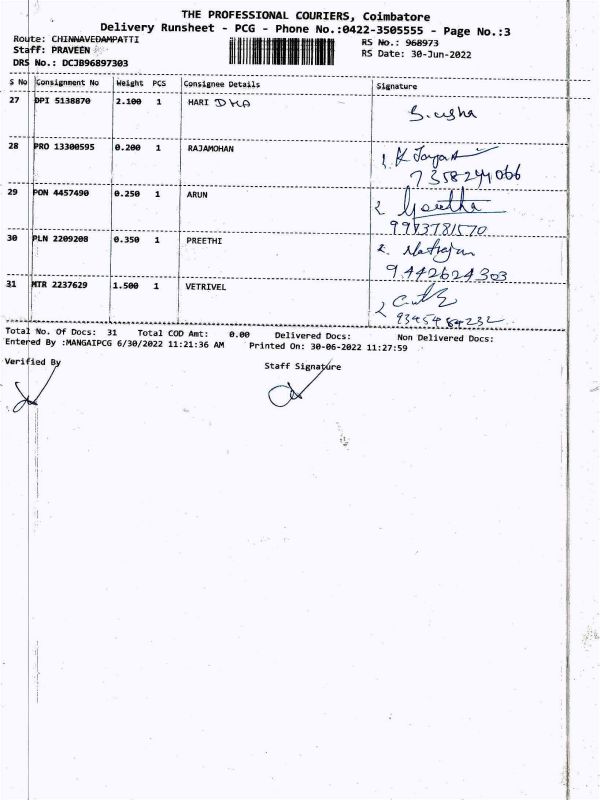 THE PROFESSIONAL COURIERS, Coimbatore
Delivery Runsheet - PCG - Phone No.:0422-3505555 - Page No.:3
Route: CHINNAVEDAMPATTI
RS No.: 968973
Staff: PRAVEEN
RS Date: 30-Jun-2022
DRS No.: DCJB96897303
S No Consignment No Weight PCS Consignee Details Signature
27 DPI 5138870 2.100 1 HARI DHA
S. usha
28 PRO 13300595 0.200 1 RAJAMOHAN
7358244066
29 PON 4457490 0.250 1 ARUN
Geetha
9993781570
30 PLN 2209208 0.350 1 PREETHI
2. Natrajan
9442624303
31 MTR 2237629 1.500 1 VETRIVEL
9345484232
Total No. Of Docs: 31 Total COD Amt: 0.00 Delivered Docs: Non Delivered Docs:
Entered By :MANGAIPCG 6/30/2022 11:21:36 AM Printed On: 30-06-2022 11:27:59
Verified By Staff Signature